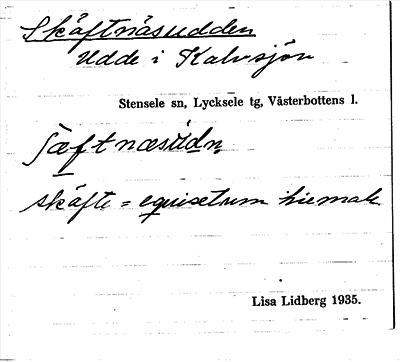 Skäftnäsudden
Udde i Kalvsjön
Stensele sn, Lycksele tg, Västerbottens l.
ʃæftnæsúdn̥
skäfte = equisetum hiemale
Lisa Lidberg 1935.